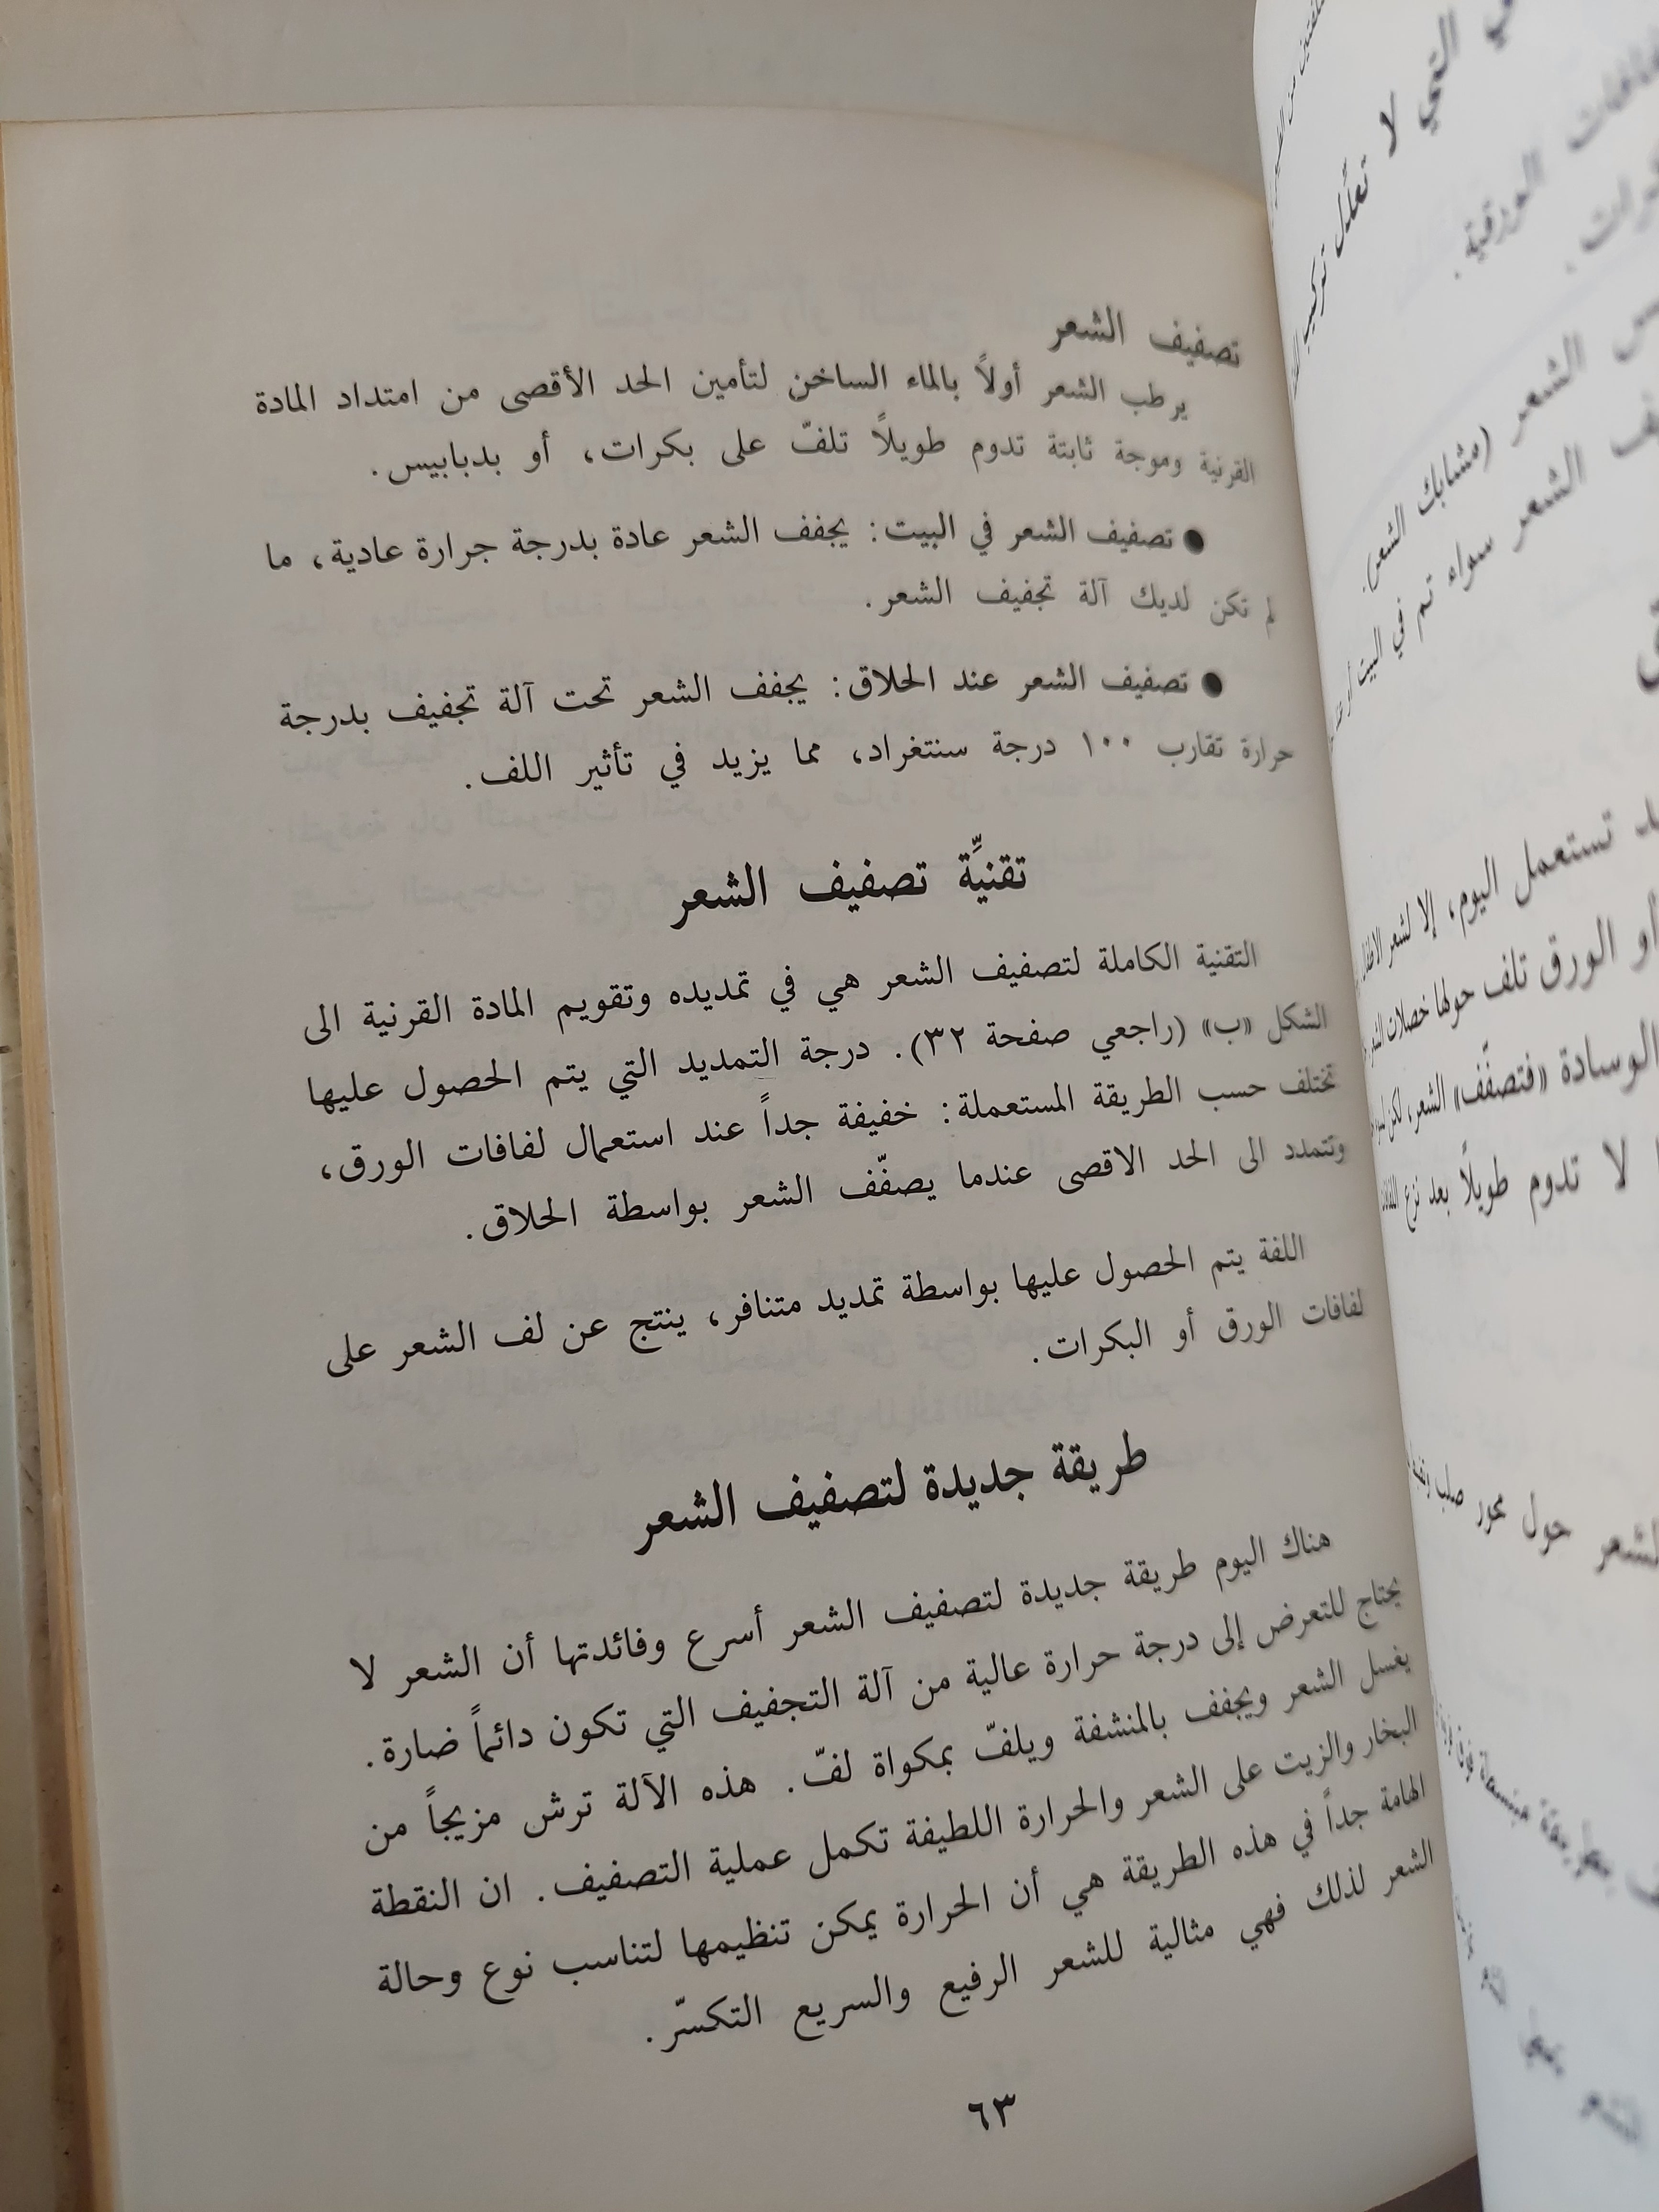 تصفيف الشعر
يرطب الشعر أولاً بالماء الساخن لتأمين الحد الأقصى من امتداد المادة
القرنية وموجة ثابتة تدوم طويلاً تلفّ على بكرات، أو بدبابيس.
● تصفيف الشعر في البيت: يجفف الشعر عادة بدرجة جرارة عادية، ما
لم تكن لديك آلة تجفيف الشعر.
● تصفيف الشعر عند الحلاق: يجفف الشعر تحت آلة تجفيف بدرجة
حرارة تقارب ١٠٠ درجة سنتغراد، مما يزيد في تأثير اللف.
تقنيَّة تصفيف الشعر
التقنية الكاملة لتصفيف الشعر هي في تمديده وتقويم المادة القرنية الى
الشكل «ب» (راجعي صفحة ٣٢). درجة التمديد التي يتم الحصول عليها
تختلف حسب الطريقة المستعملة: خفيفة جداً عند استعمال لفافات الورق،
وتتمدد الى الحد الاقصى عندما يصفّف الشعر بواسطة الحلاق.
اللفة يتم الحصول عليها بواسطة تمديد متنافر، ينتج عن لف الشعر على
لفافات الورق أو البكرات.
طريقة جديدة لتصفيف الشعر
هناك اليوم طريقة جديدة لتصفيف الشعر أسرع وفائدتها أن الشعر لا
يحتاج للتعرض إلى درجة حرارة عالية من آلة التجفيف التي تكون دائماً ضارة.
يغسل الشعر ويجفف بالمنشفة ويلفّ بمكواة لفّ. هذه الآلة ترش مزيجاً من
البخار والزيت على الشعر والحرارة اللطيفة تكمل عملية التصفيف. ان النقطة
الهامة جداً في هذه الطريقة هي أن الحرارة يمكن تنظيمها لتناسب نوع وحالة
الشعر لذلك فهي مثالية للشعر الرفيع والسريع التكسّر.
٦٣
التي لا تعدّل تركيب
الورقية.
الشعر (مشابك الشعر).
الشعر سواء تم في البيت أو
تستعمل اليوم، إلا لشعر
أو الورق تلف حولها خصلات
الوسادة «فتصفّف» الشعر، لكن
لا تدوم طويلاً بعد نزع
الشعر حول محور صلب